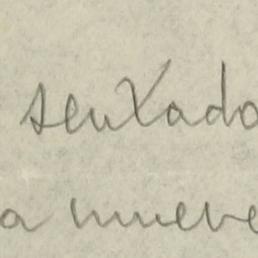 sentado
a mueve